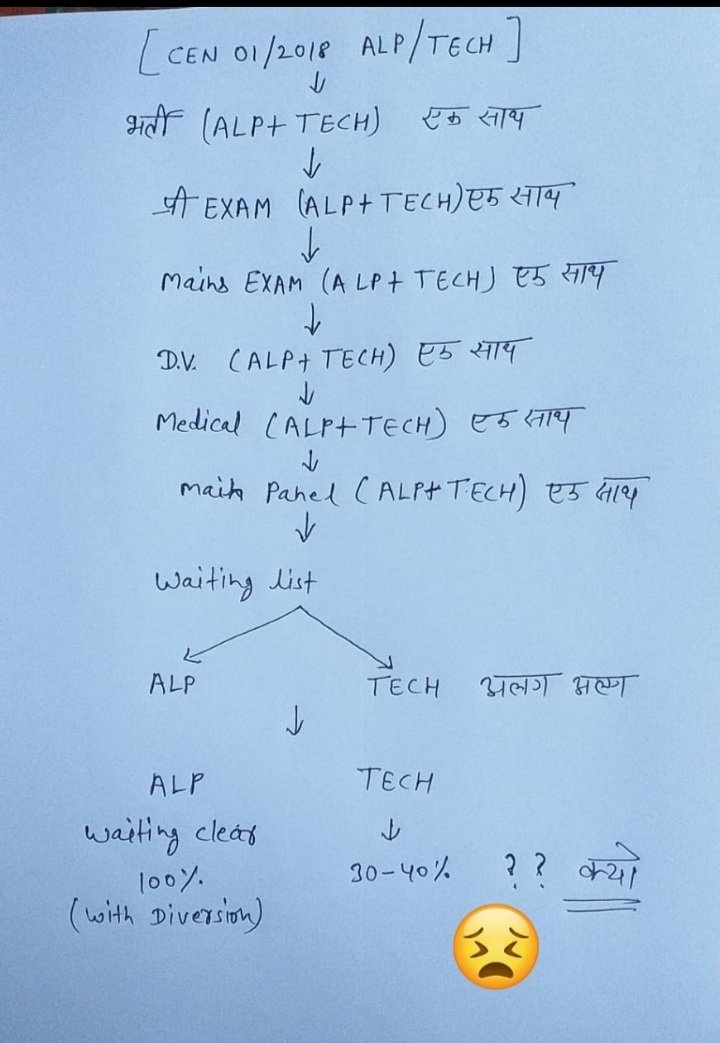 [CEN 01/2018 ALP/TECH]
↓
भर्ती (ALP+TECH) एक साथ
↓
प्री EXAM (ALP+TECH) एक साथ
↓
Mains EXAM (ALP+TECH) एक साथ
↓
D.V. (ALP+TECH) एक साथ
↓
Medical (ALP+TECH) एक साथ
↓
Main Panel (ALP+TECH) एक साथ
↓
Waiting list
ALP TECH अलग अलग
↓
ALP TECH
Waiting clear ↓
100% 30-40% ?? क्यो
(with Diversion)